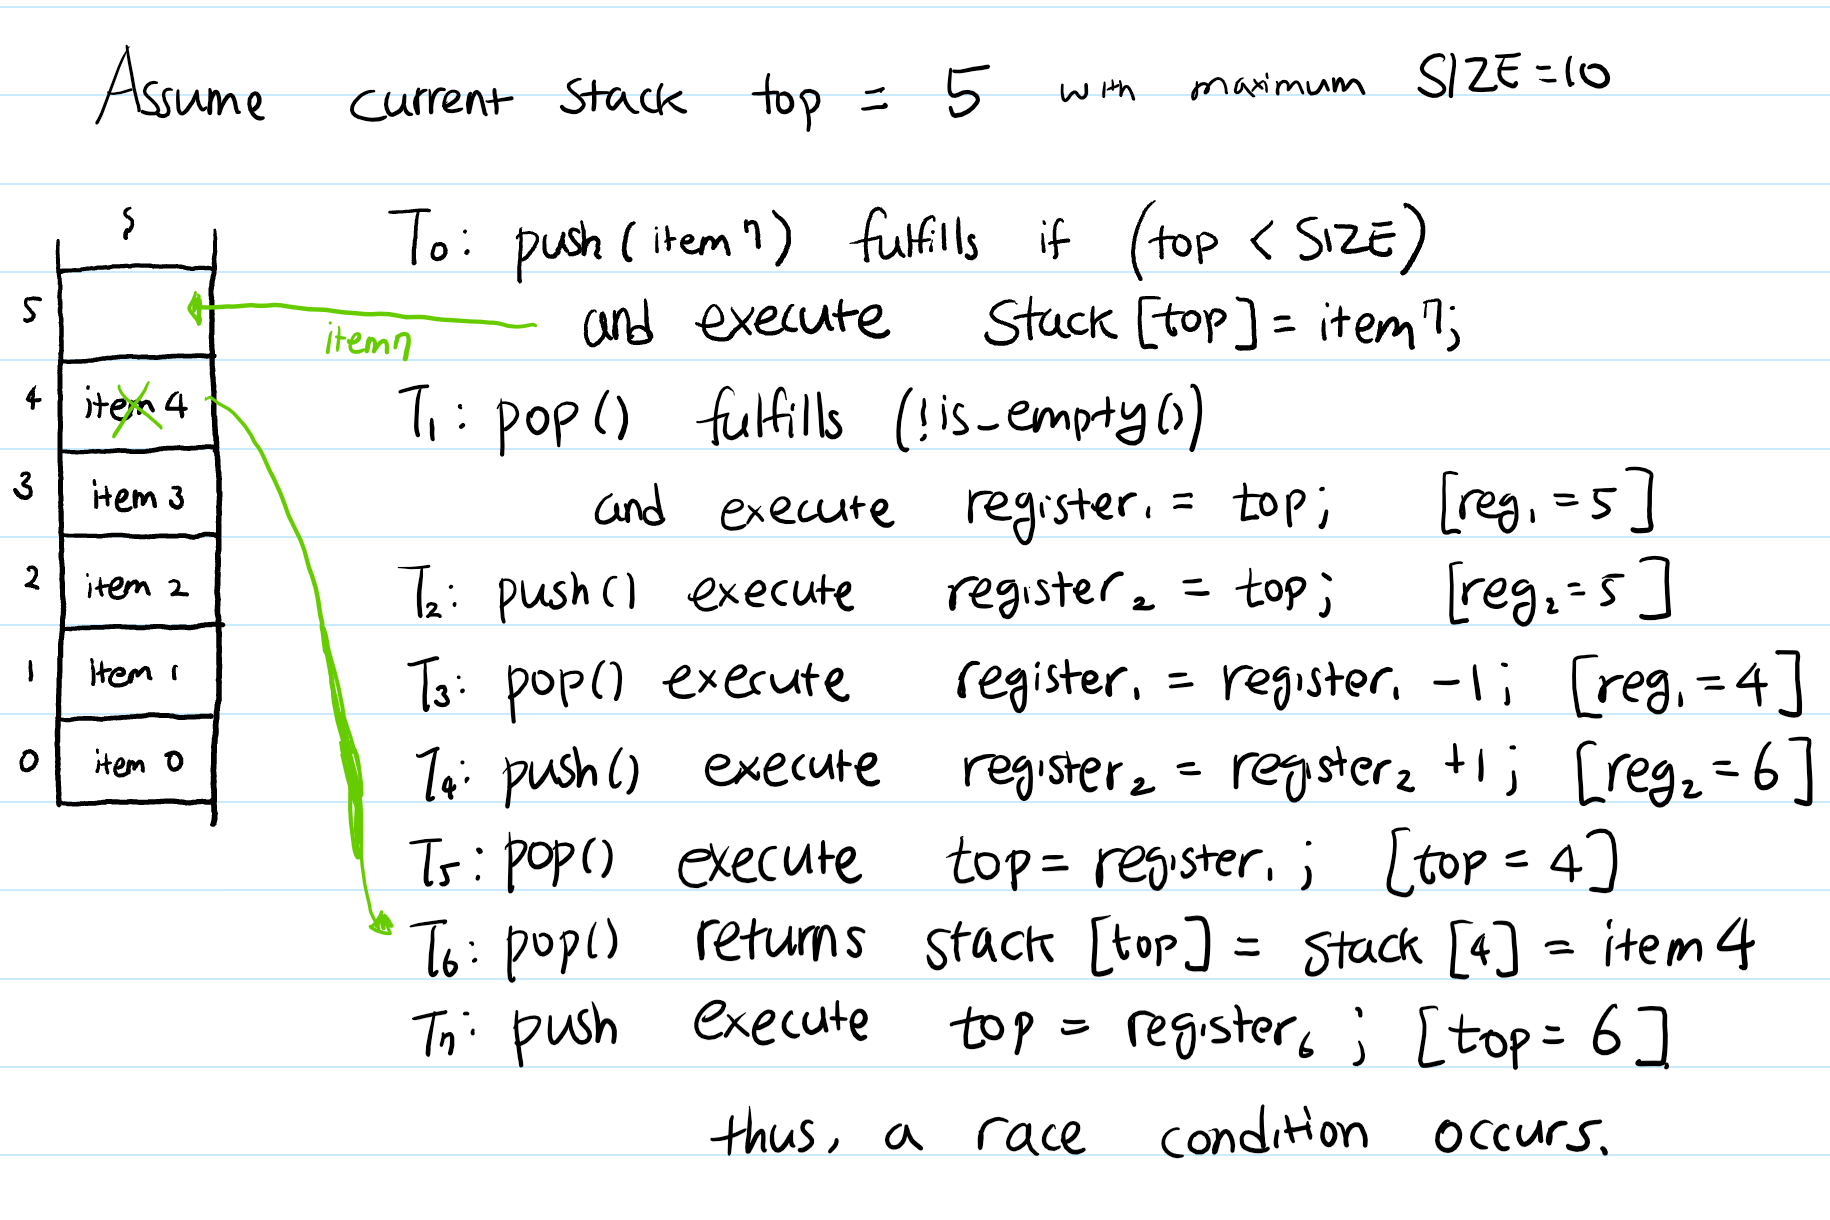 Assume current stack top = 5 with maximum SIZE=10
S
T₀: push(item7) fulfills if (top < SIZE)
5
item7
and execute Stack[top]=item7;
4 item 4
T₁: pop() fulfills (!is_empty())
3 item 3
and execute register₁ = top; [reg₁=5]
2 item 2
T₂: push() execute register₂ = top; [reg₂=5]
1 Item 1
T₃: pop() execute register₁ = register₁ -1; [reg₁=4]
0 item 0
T₄: push() execute register₂ = register₂ +1; [reg₂=6]
T₅: pop() execute top= register₁; [top=4]
T₆: pop() returns stack [top] = stack [4] = item 4
T₇: push execute top = register₆; [top=6]
thus, a race condition occurs.